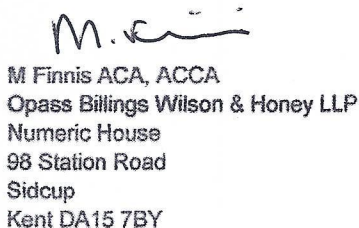 M. Finnis
M Finnis ACA, ACCA
Opass Billings Wilson & Honey LLP
Numeric House
98 Station Road
Sidcup
Kent DA15 7BY